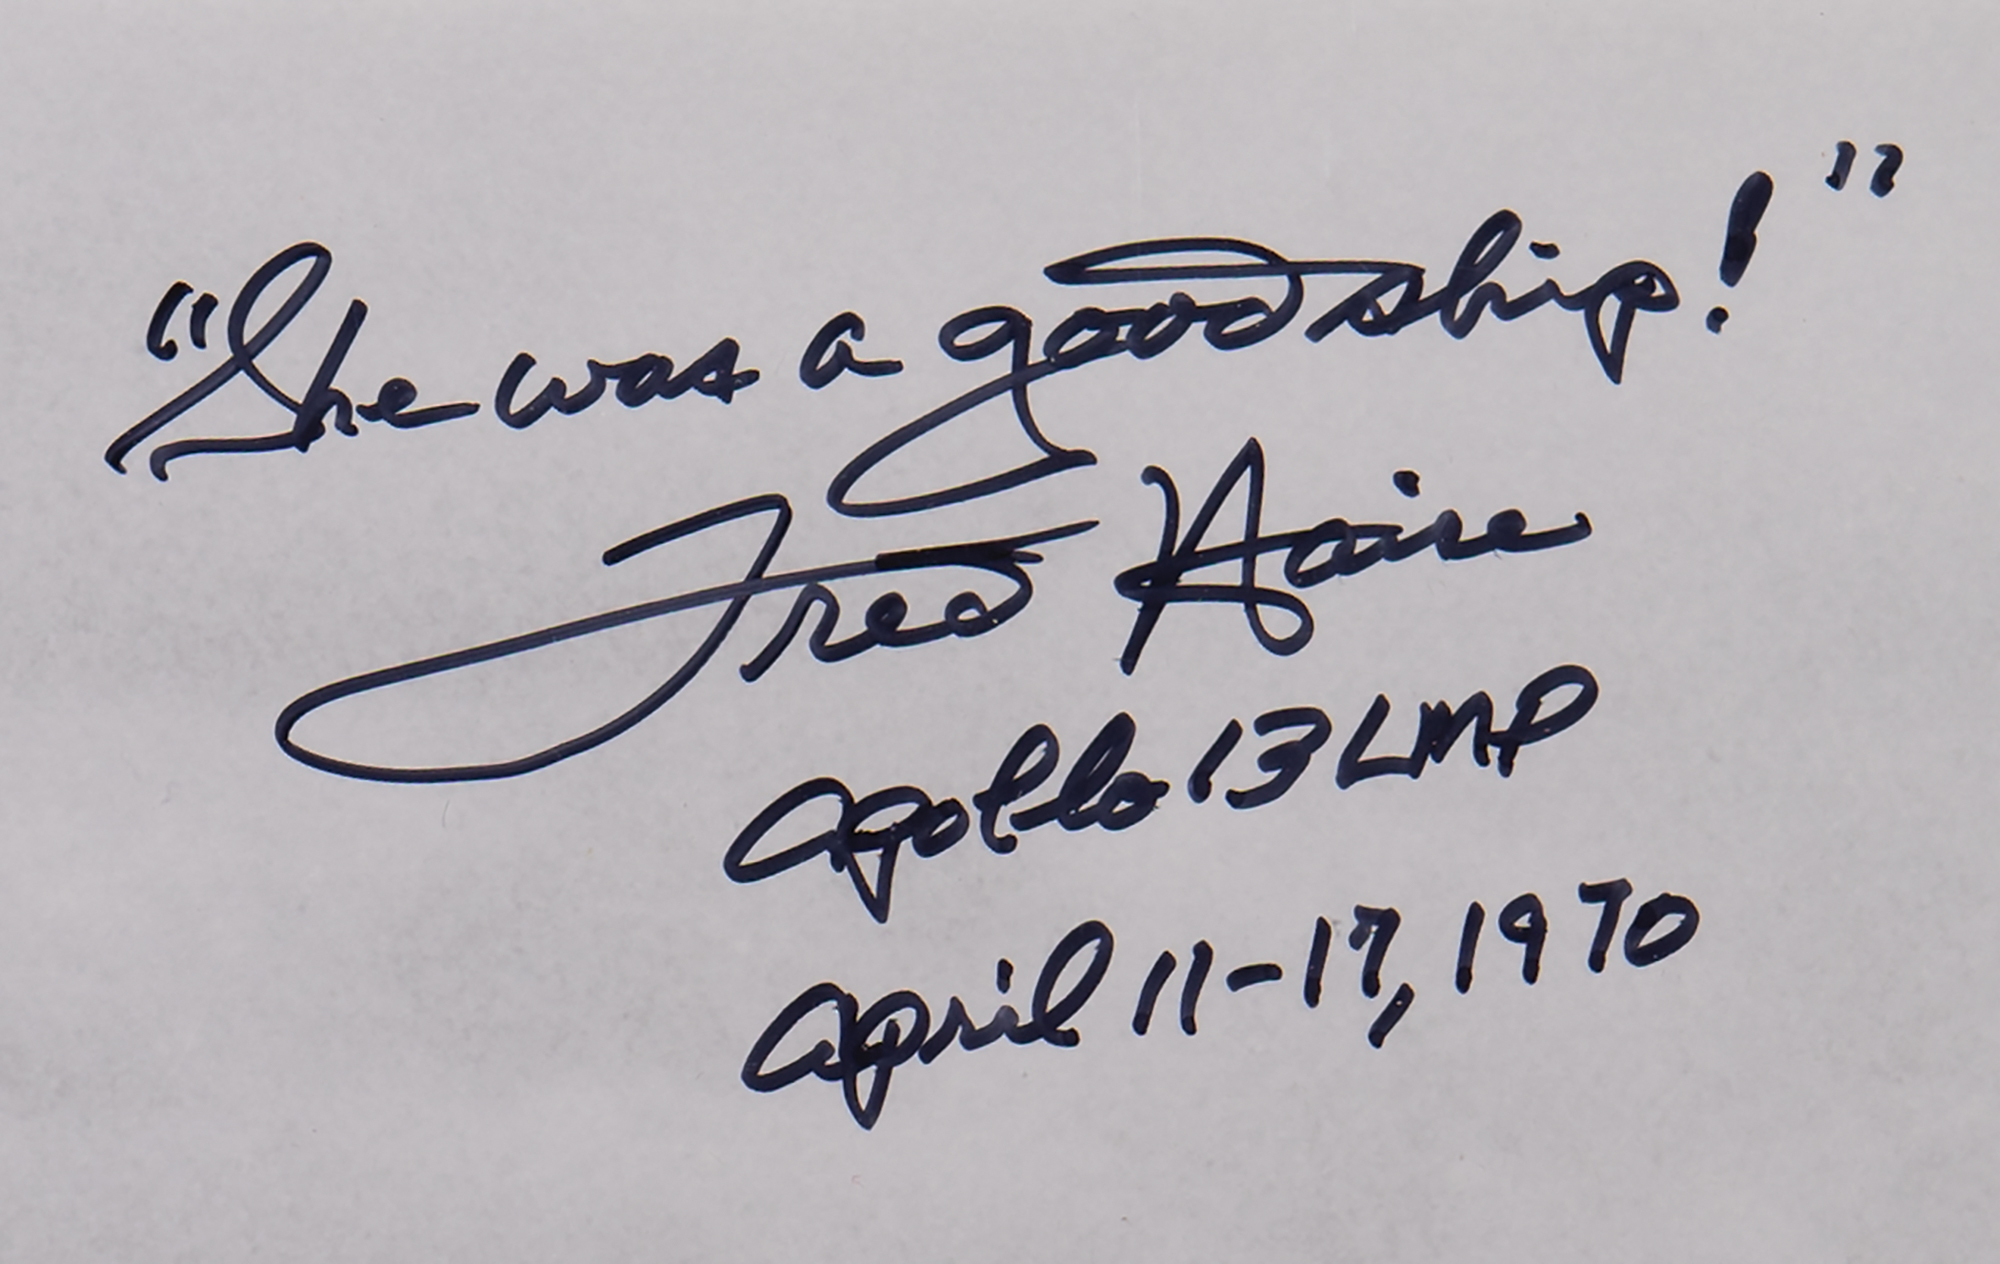 "She was a good ship!"
Fred Haise
Apollo 13 LMP
April 11-17, 1970